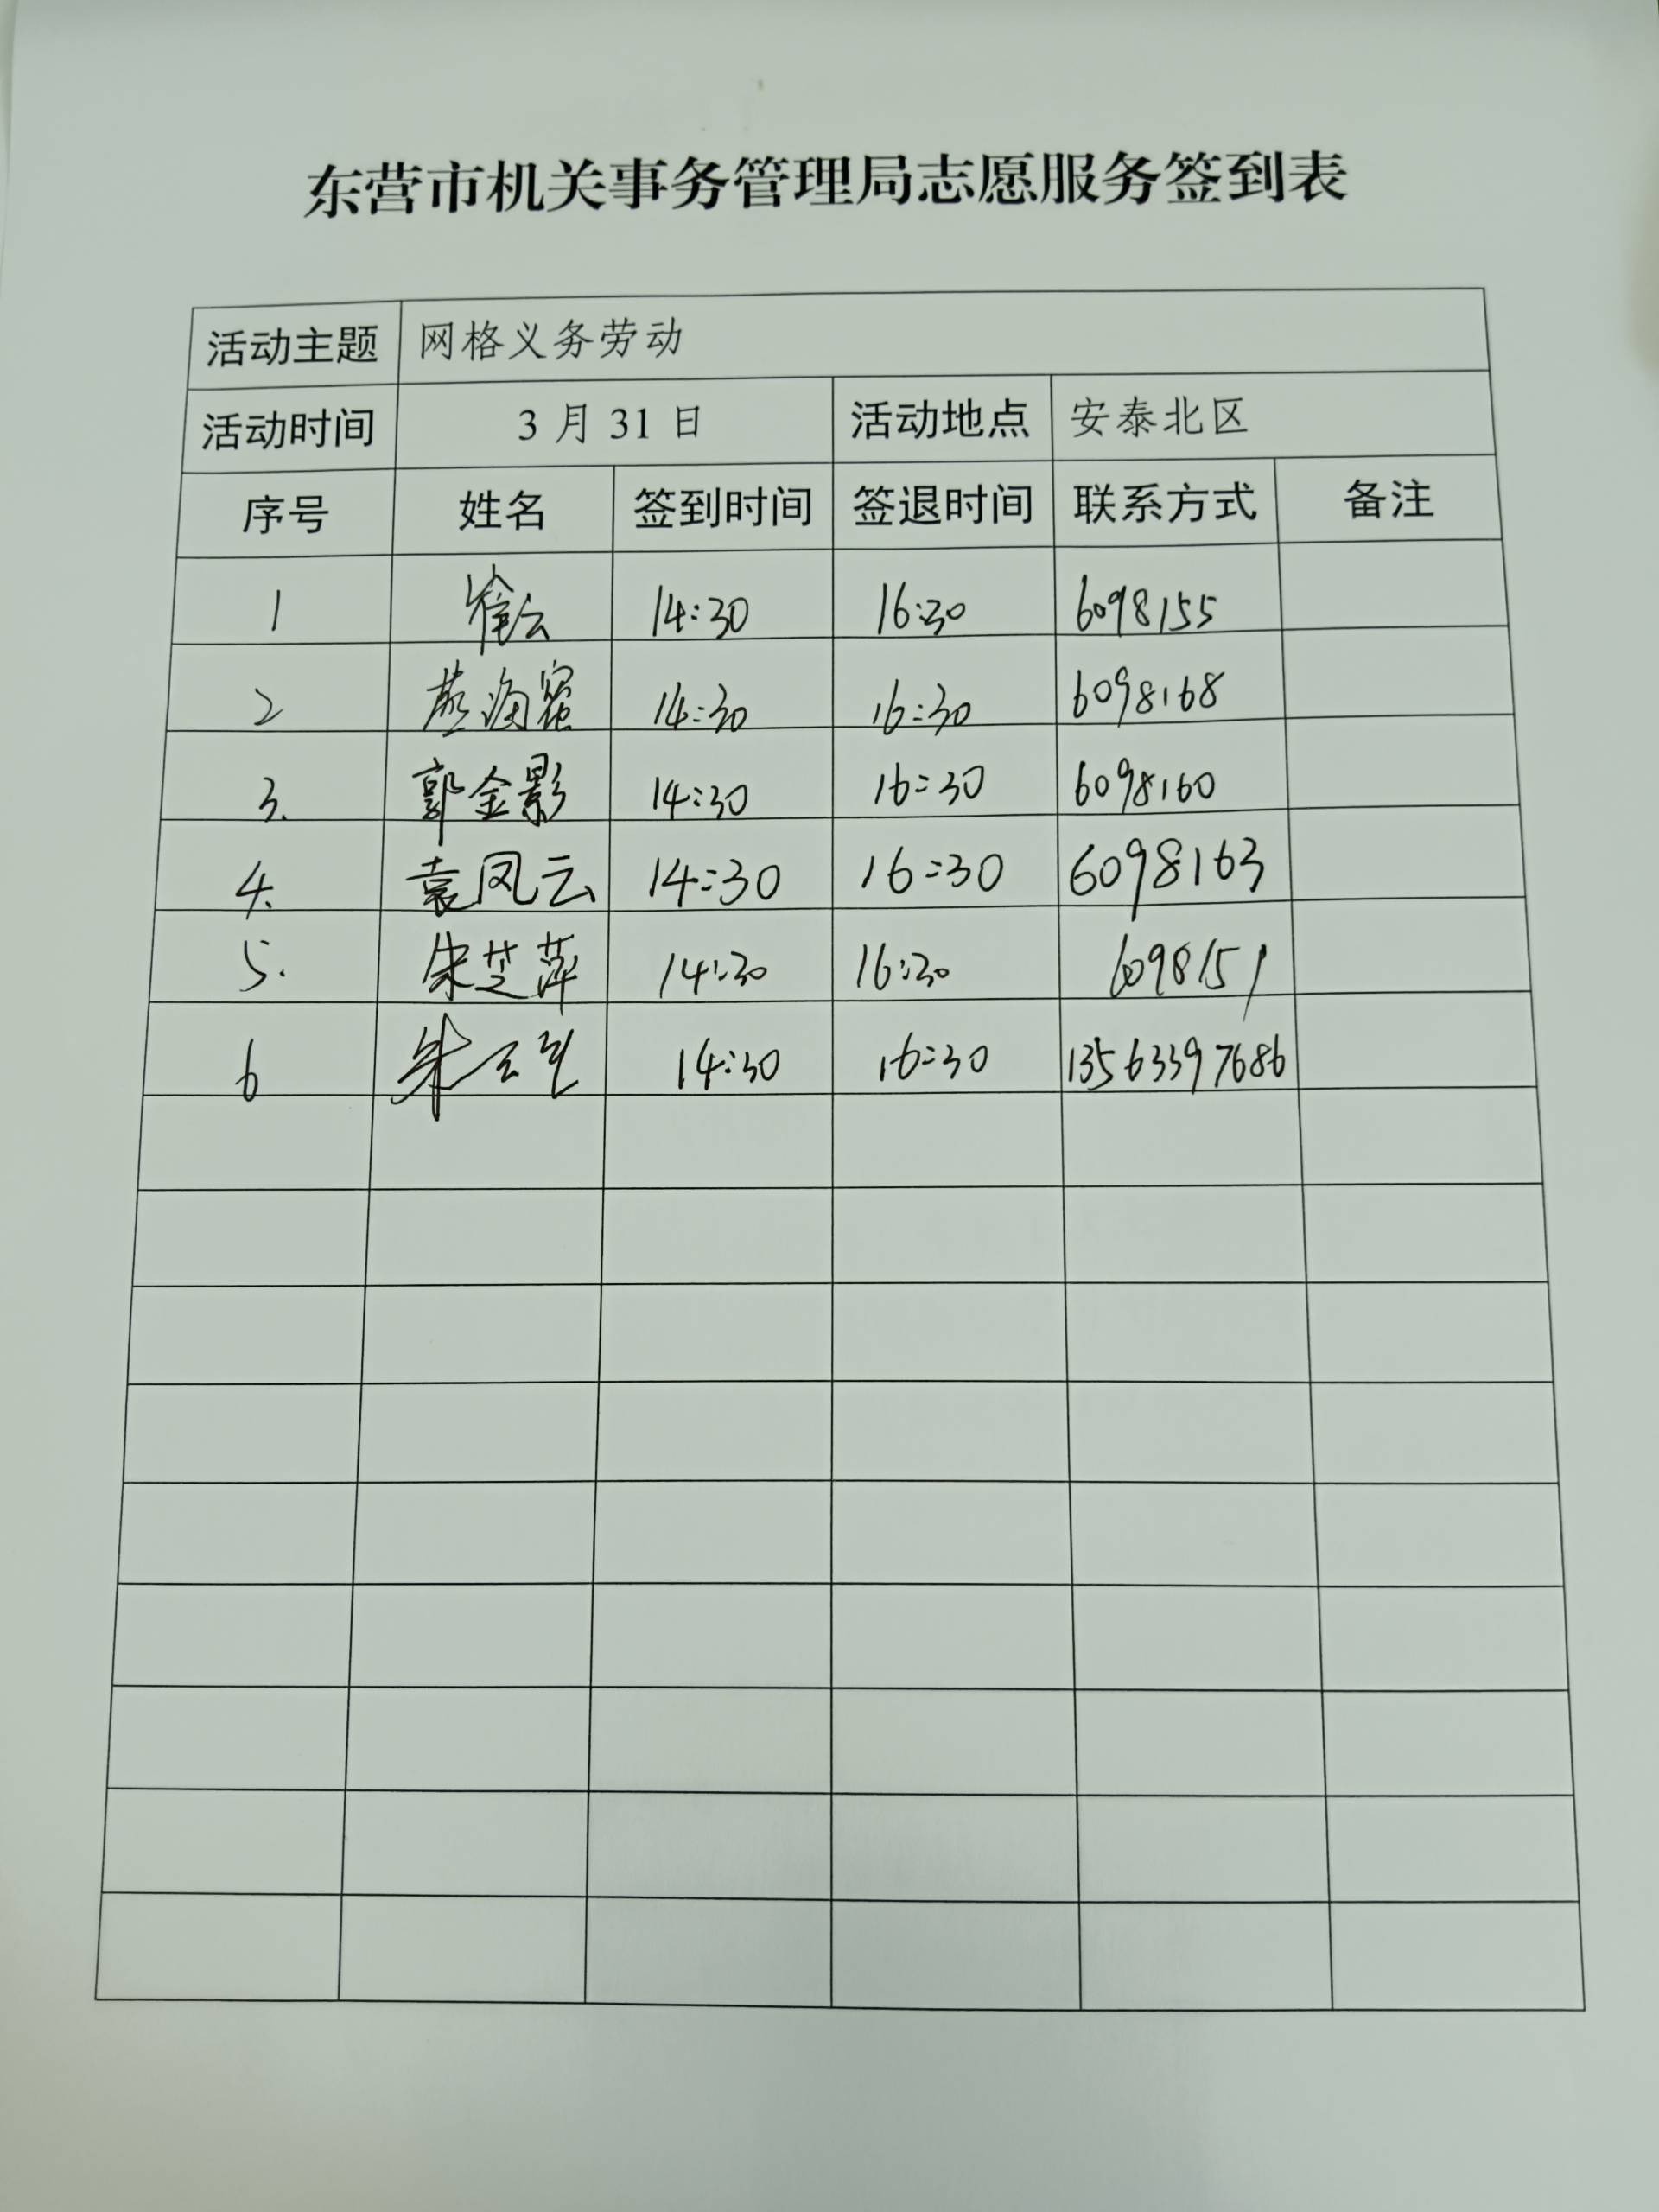 东营市机关事务管理局志愿服务签到表
活动主题 网格义务劳动
活动时间 3月31日 活动地点 安泰北区
序号 姓名 签到时间 签退时间 联系方式 备注
1 崔云 14:30 16:30 6098155
2 14:30 16:30 6098168
3. 郭金影 14:30 16:30 6098160
4. 袁凤云 14:30 16:30 6098163
5. 朱芝萍 14:30 16:30 6098151
6 14:30 16:30 13563397686